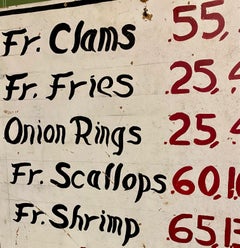 Fr. Clams .55,
Fr. Fries .25,
Onion Rings .25,
Fr. Scallops .60,
Fr. Shrimp .65,